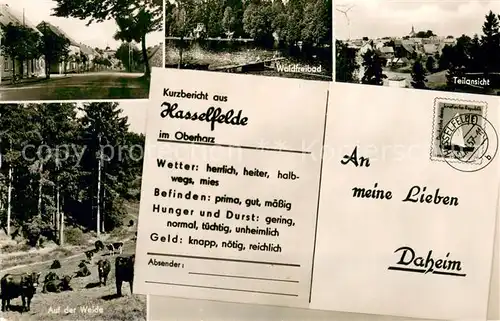 Waldfreibad
Teilansicht
Kurzbericht aus
Hasselfelde
im Oberharz
Wetter: herrlich, heiter, halb-
wegs, mies
Befinden: prima, gut, mäßig
Hunger und Durst: gering,
normal, tüchtig, unheimlich
Geld: knapp, nötig, reichlich
Absender:
An
meine Lieben
Daheim
Auf der Weide